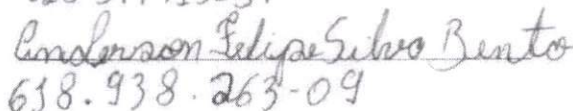 Anderson Felipe Silva Bento
618.938.263-09